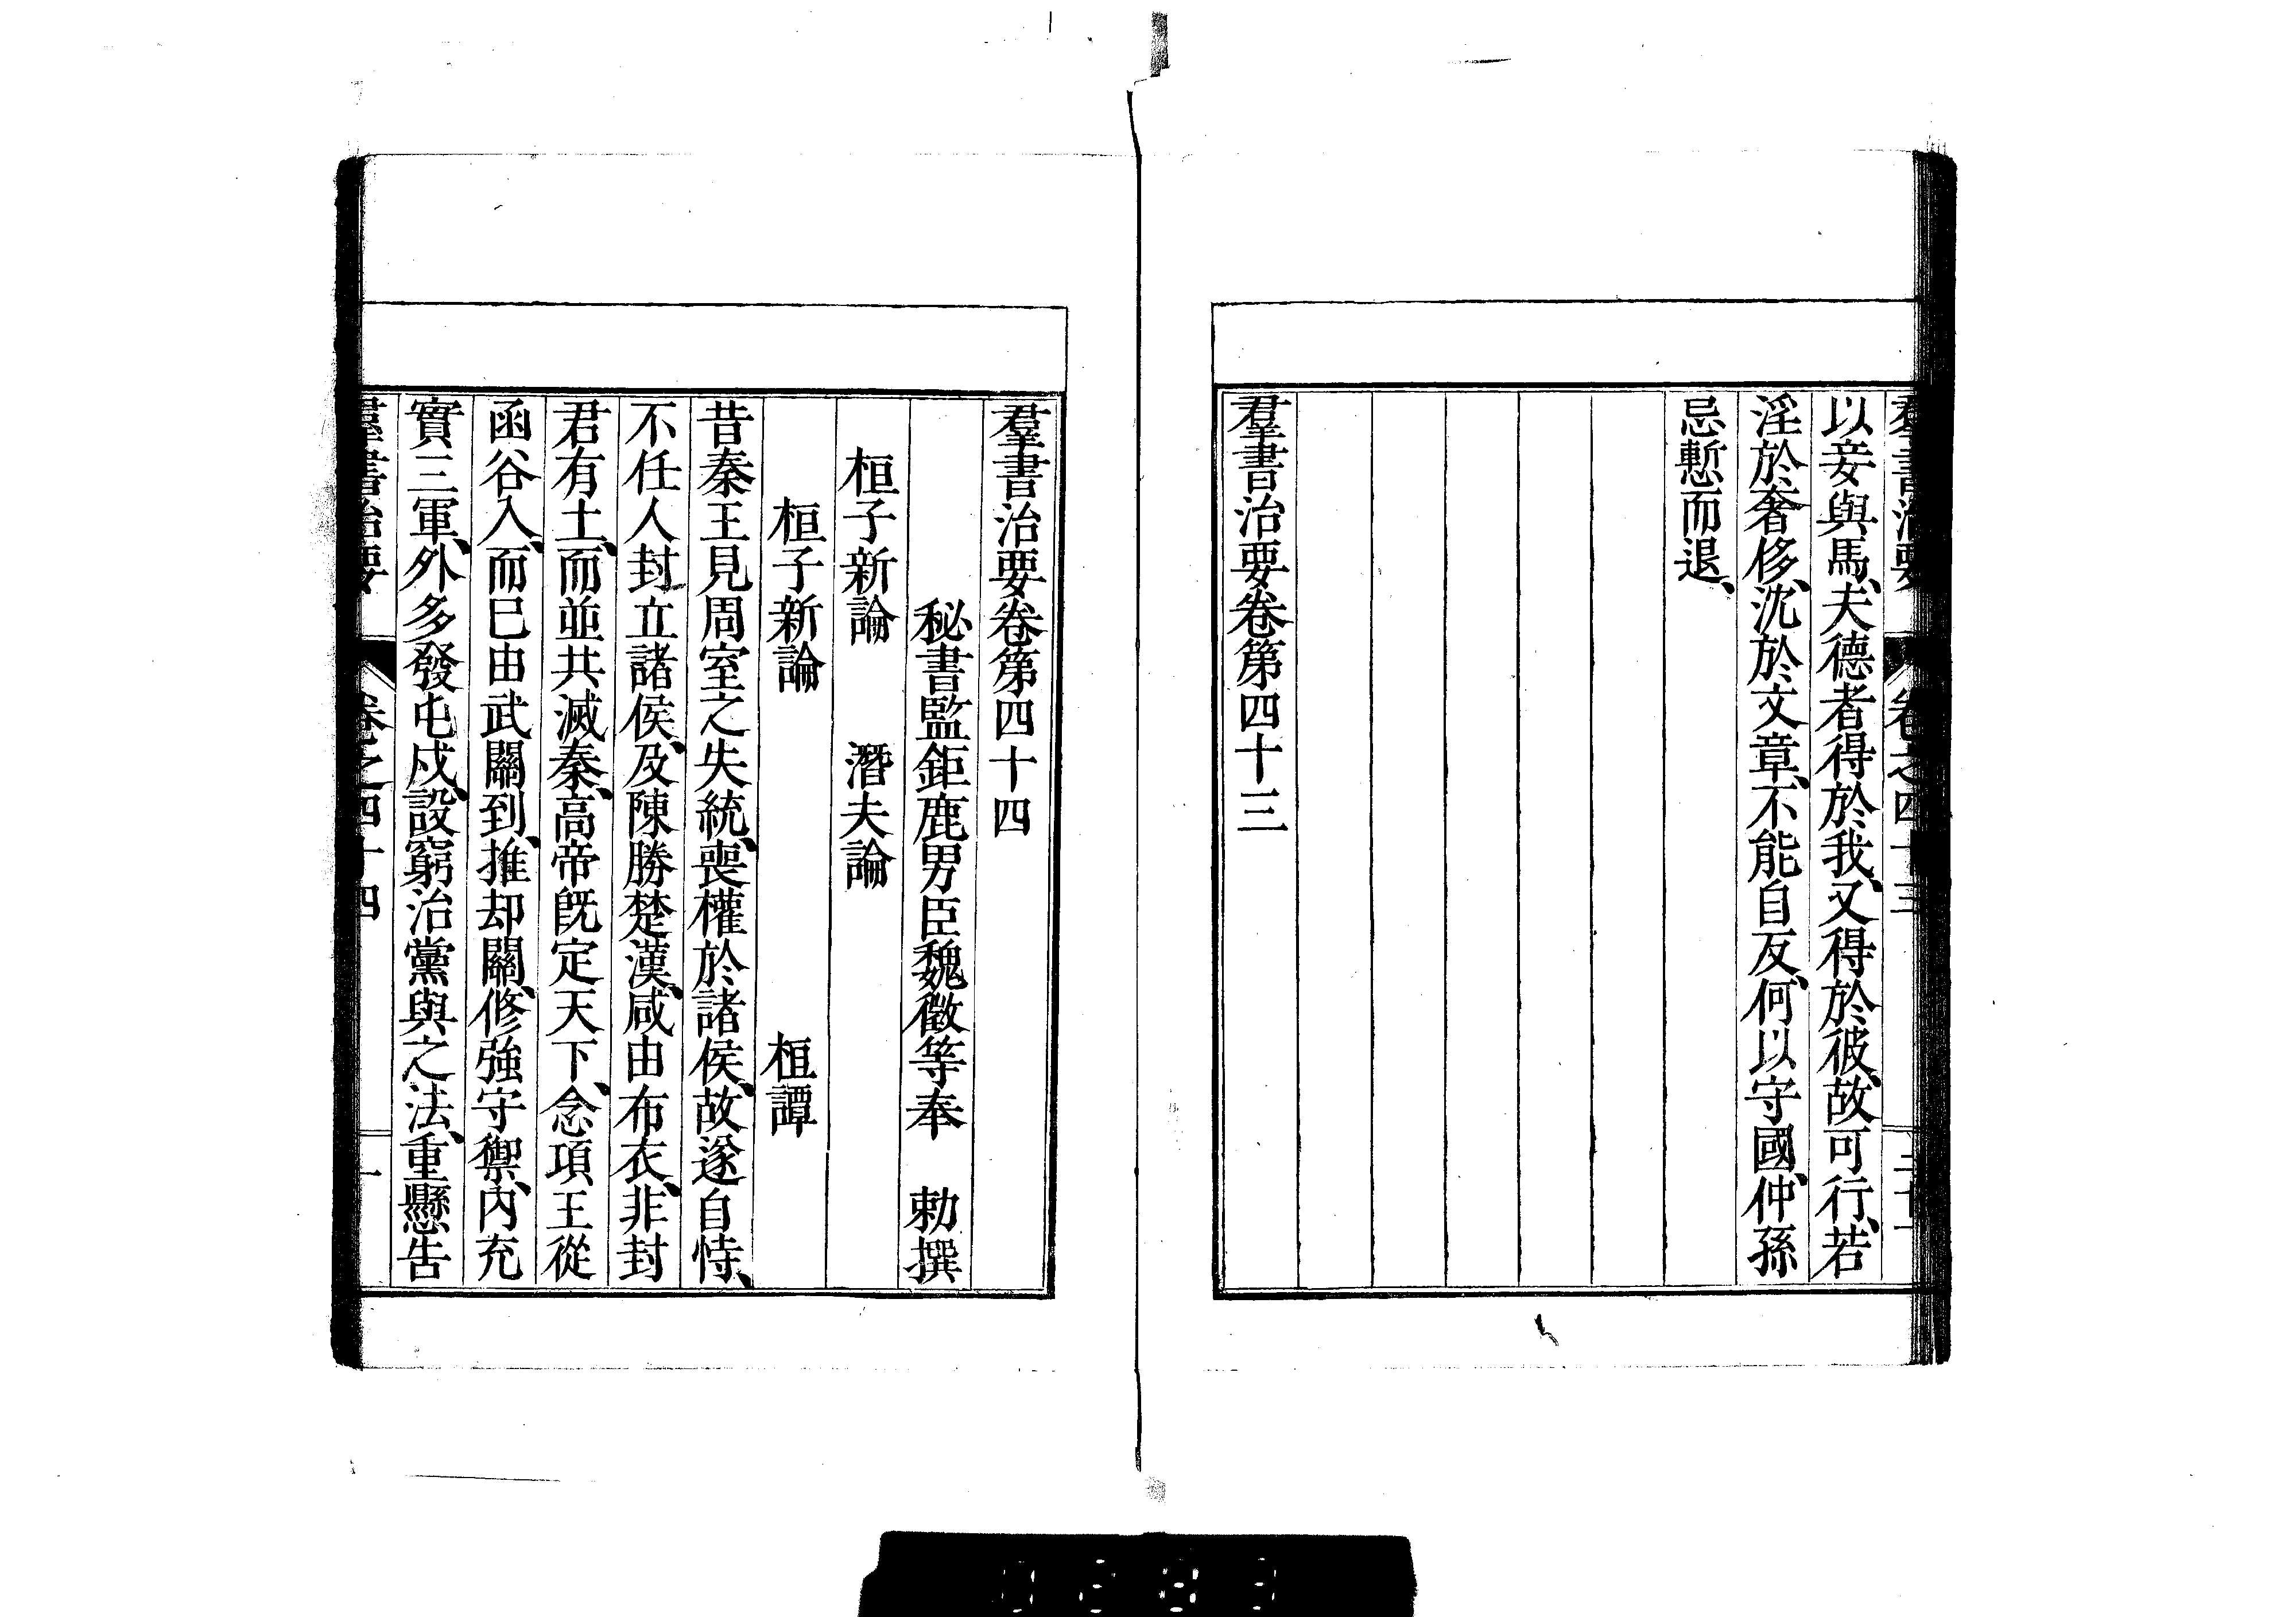 羣書治要 卷之四十三
以妾與馬、夫德者得於我、又得於彼、故可行、若
淫於奢侈、沈於文章、不能自反、何以守國、仲孫
忌慙而退、
羣書治要卷第四十三
羣書治要卷第四十四
秘書監鉅鹿男臣魏徵等奉 勅撰
桓子新論 潛夫論
桓子新論 桓譚
昔秦王見周室之失統、喪權於諸侯、故遂自恃、
不任人封立諸侯、及陳勝楚漢、咸由布衣、非封
君有土、而並共滅秦、高帝既定天下、念項王從
函谷入、而巳由武關到、推却關、修強守禦、內充
實三軍、外多發屯戍、設窮治黨與之法、重懸告
羣書治要 卷之四十四 一